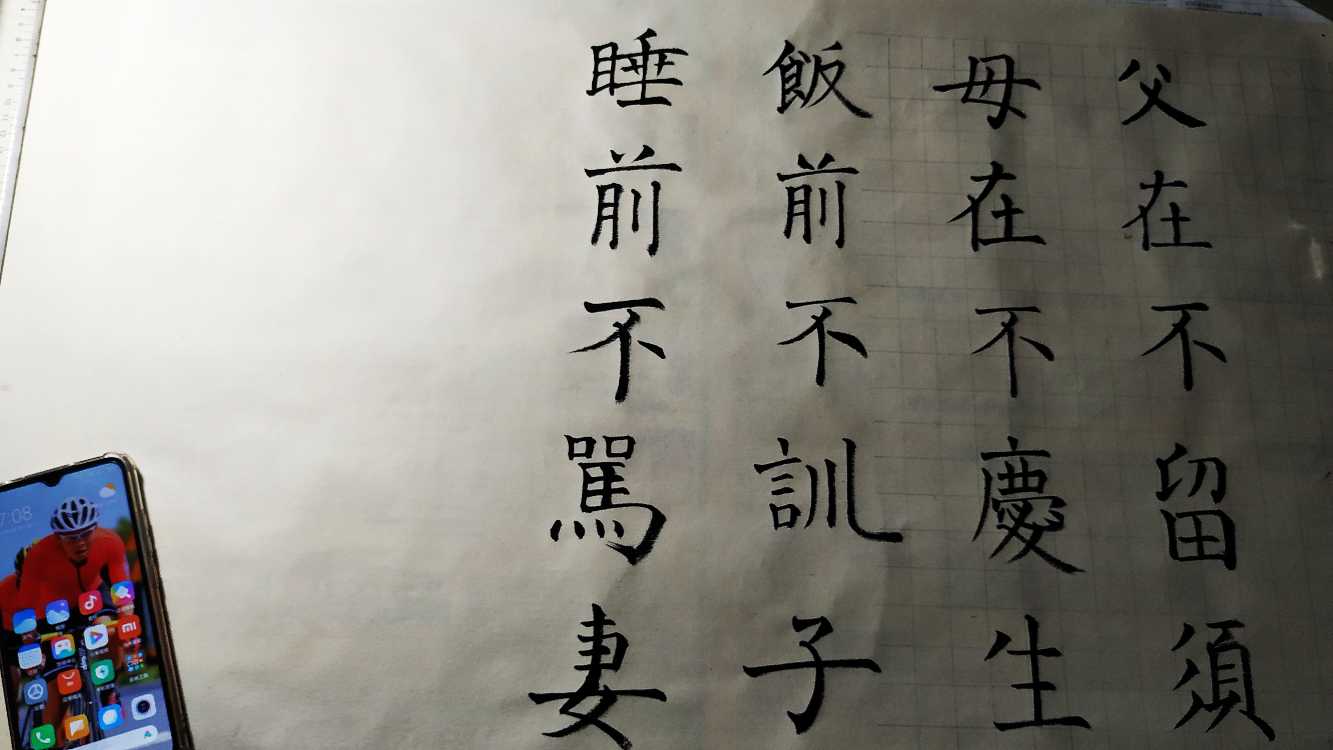 父在不留須
母在不慶生
飯前不訓子
睡前不罵妻
7:08